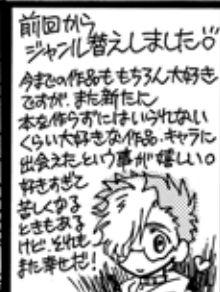 前回から
ジャンル替えしました
今までの作品ももちろん大好き
ですが、また新たに
本を作らずにはいられない
くらい大好きな作品、キャラに
出会えたという事が嬉しい。
好きすぎて
苦しくなる
ときもある
けど、それも
また幸せだ!